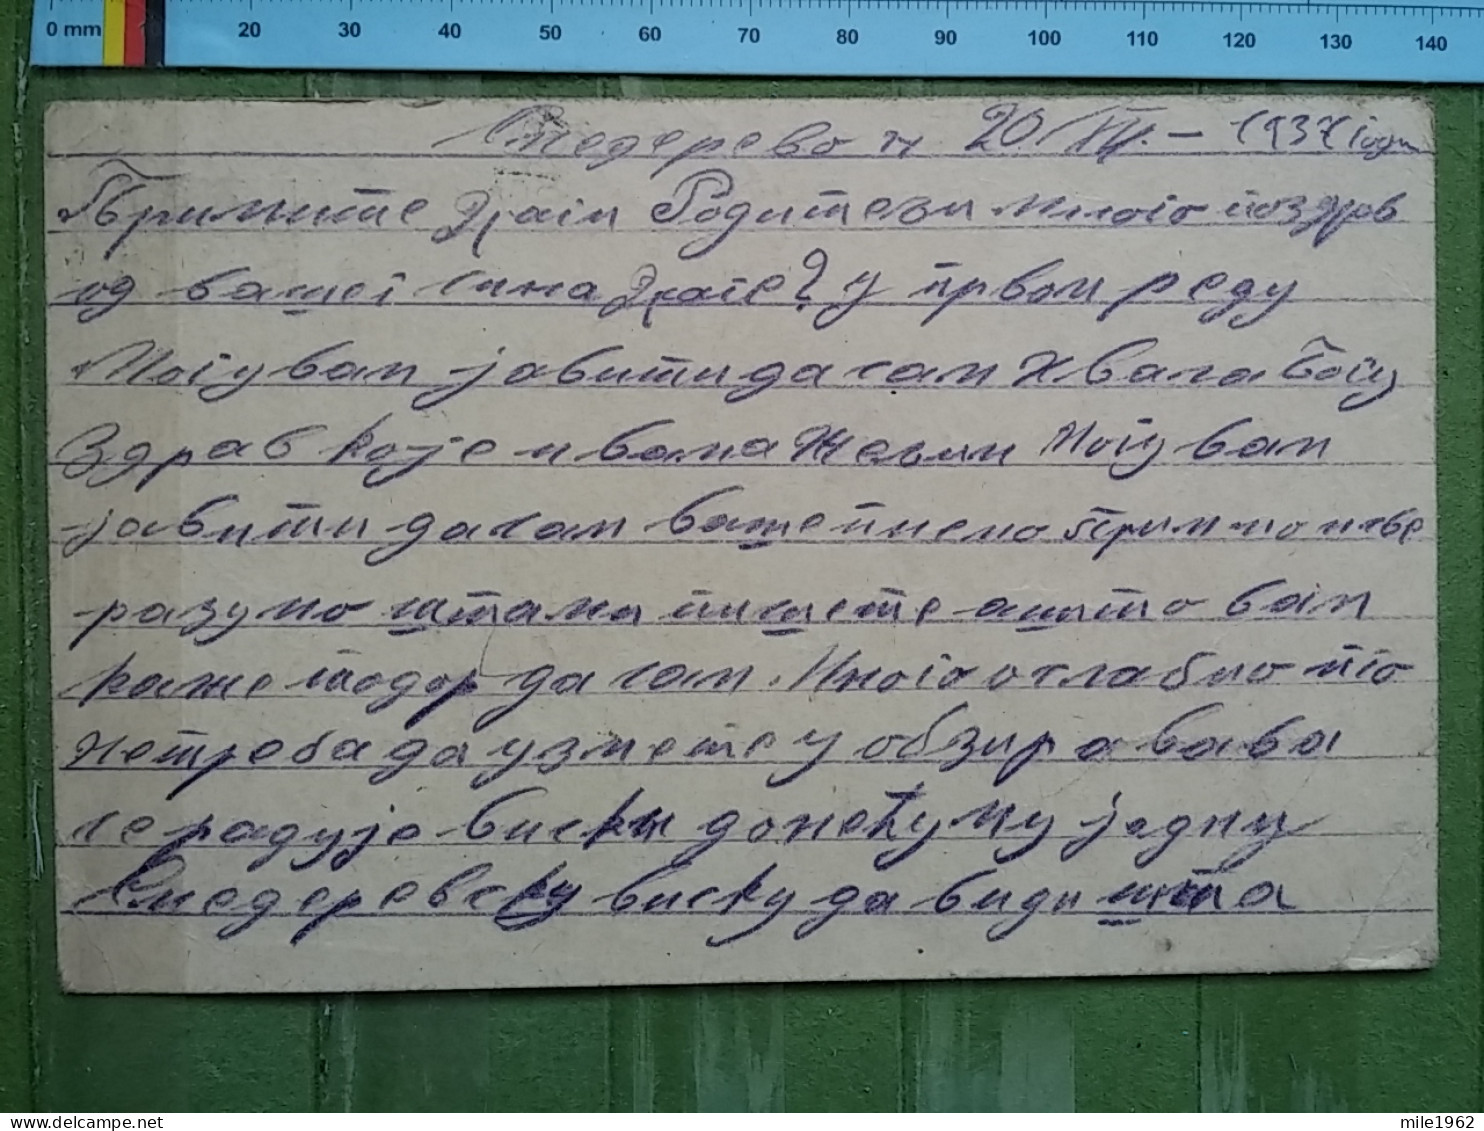 0 mm 20 30 40 50 60 70 80 90 100 110 120 130 140
Смедерево 20/XII. – 1937 год
Примите Драги Родитељи много поздрав
од вашег сина Драге? у првом реду
Могу вам јавити да сам Хвала Богу
Здрав које и вама Желим Могу вам
јавити да сам ваше писмо примио и све
разумо шта ми пишете а што вам
каже тодор да сам. Много ослабио то
нетреба да узмете у обзир а вава
се радује виски донећу му једну
Смедеревску виску да види шта
mile1962